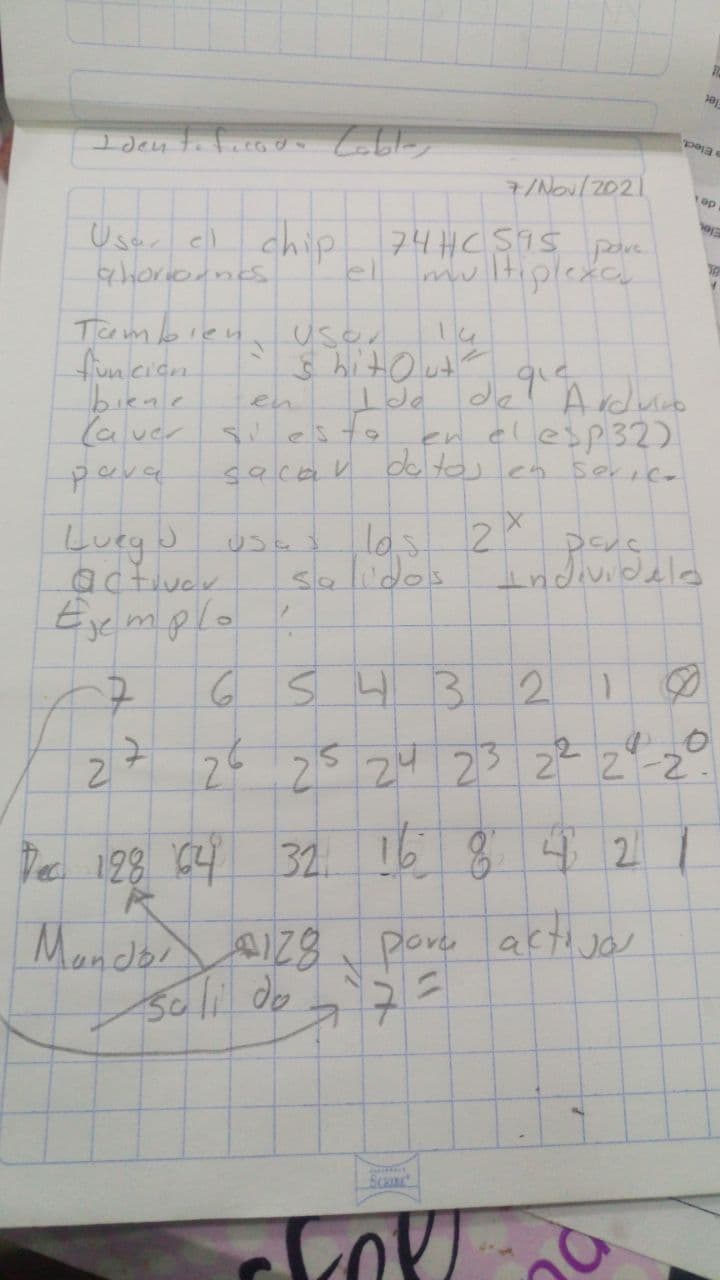 Identificado Cables
7/Nov/2021
Usar el chip 74HC595 para
ahorrarnos el multiplexa
Tambien, usar la
función "shitOut" que
biene en Ide de Arduino
(a ver si esta en el esp32)
para sacar datos en serie
Luego usas los 2^x para
activar salidas individuals
Ejemplo:
7 6 5 4 3 2 1 0
2^7 2^6 2^5 2^4 2^3 2^2 2^1 2^0
Dec 128 64 32 16 8 4 2 1
Mandar 128 para activar
salida "7"
SCRIBE